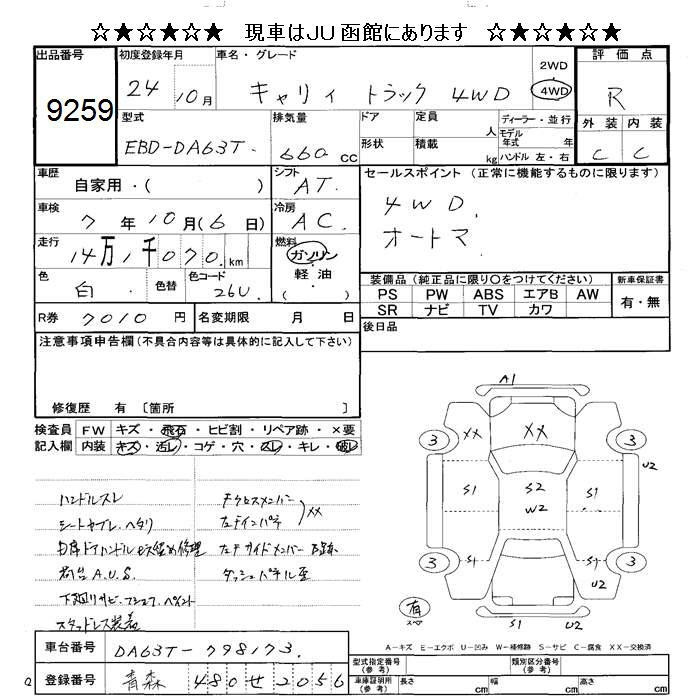 ☆★☆★☆★ 現車はJU函館にあります ☆★☆★☆★
出品番号 初度登録年月 車名・グレード 評価点
9259
24年10月 キャリィ トラック 4WD 2WD 4WD R
型式 排気量 ドア 定員 ディーラー・並行 外装 内装
EBD-DA63T. 660cc 形状 積載 人 kg モデル年式 年 ハンドル 左・右 C C
車歴 自家用・( ) シフト AT. セールスポイント (正常に機能するものに限ります)
車検 7年10月(6日) 冷房 AC. 4WD.
走行 14万1千070.km 燃料 ガソリン 軽油・( ) オートマ.
色 白. 色替 色コード 26U. 装備品(純正品に限り○をつけてください) 新車保証書
PS PW ABS エアB AW 有・無
SR ナビ TV カワ
R券 7010円 名変期限 月 日 後日品
注意事項申告欄(不具合内容等は具体的に記入して下さい)
修復歴 有 〔箇所 〕
検査員 FW キズ・飛石・ヒビ割・リペア跡・×要
記入欄 内装 キズ・汚レ・コゲ・穴・スレ・キレ・破レ
ハンドルスレ
シートヤブレ、ヘタリ
荷台A.U.S.
スタッドレス装着
XX
A1
3 XX XX 3
U2
S1 S2 S1
W2
3 S1 S1 3
U2
有
スペア
S1 U2
A-キズ E-エクボ U-凹み W-補修跡 S-サビ C-腐食 XX-交換済
車台番号 DA63T-798173. 型式指定番号(参考) 類別区分番号(参考)
登録番号 青森 480せ2056 車庫証明所(参考) 長さ cm 幅 cm 高さ cm